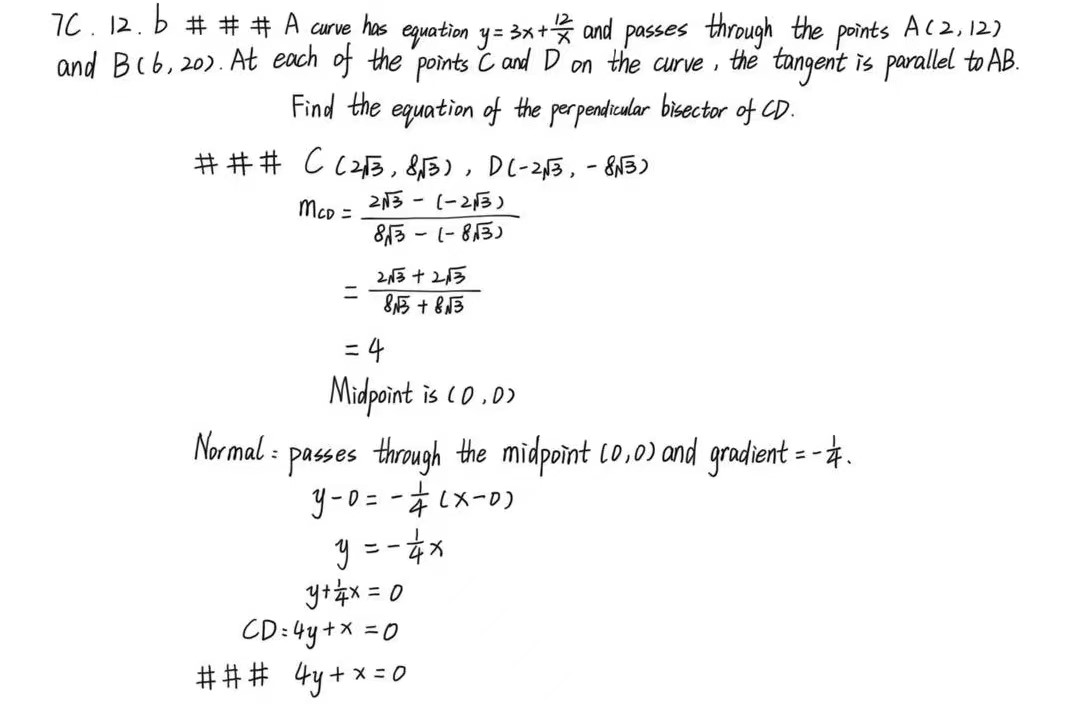 7C. 12. b # # # A curve has equation y = 3x + 12/x and passes through the points A(2,12)
and B(6,20). At each of the points C and D on the curve, the tangent is parallel to AB.
Find the equation of the perpendicular bisector of CD.
# # # C (2√3, 8√3), D(-2√3, -8√3)
mCD = (2√3 - (-2√3)) / (8√3 - (-8√3))
= (2√3 + 2√3) / (8√3 + 8√3)
= 4
Midpoint is (0,0)
Normal: passes through the midpoint (0,0) and gradient = -1/4.
y-0 = -1/4 (x-0)
y = -1/4 x
y + 1/4 x = 0
CD: 4y + x = 0
# # # 4y + x = 0